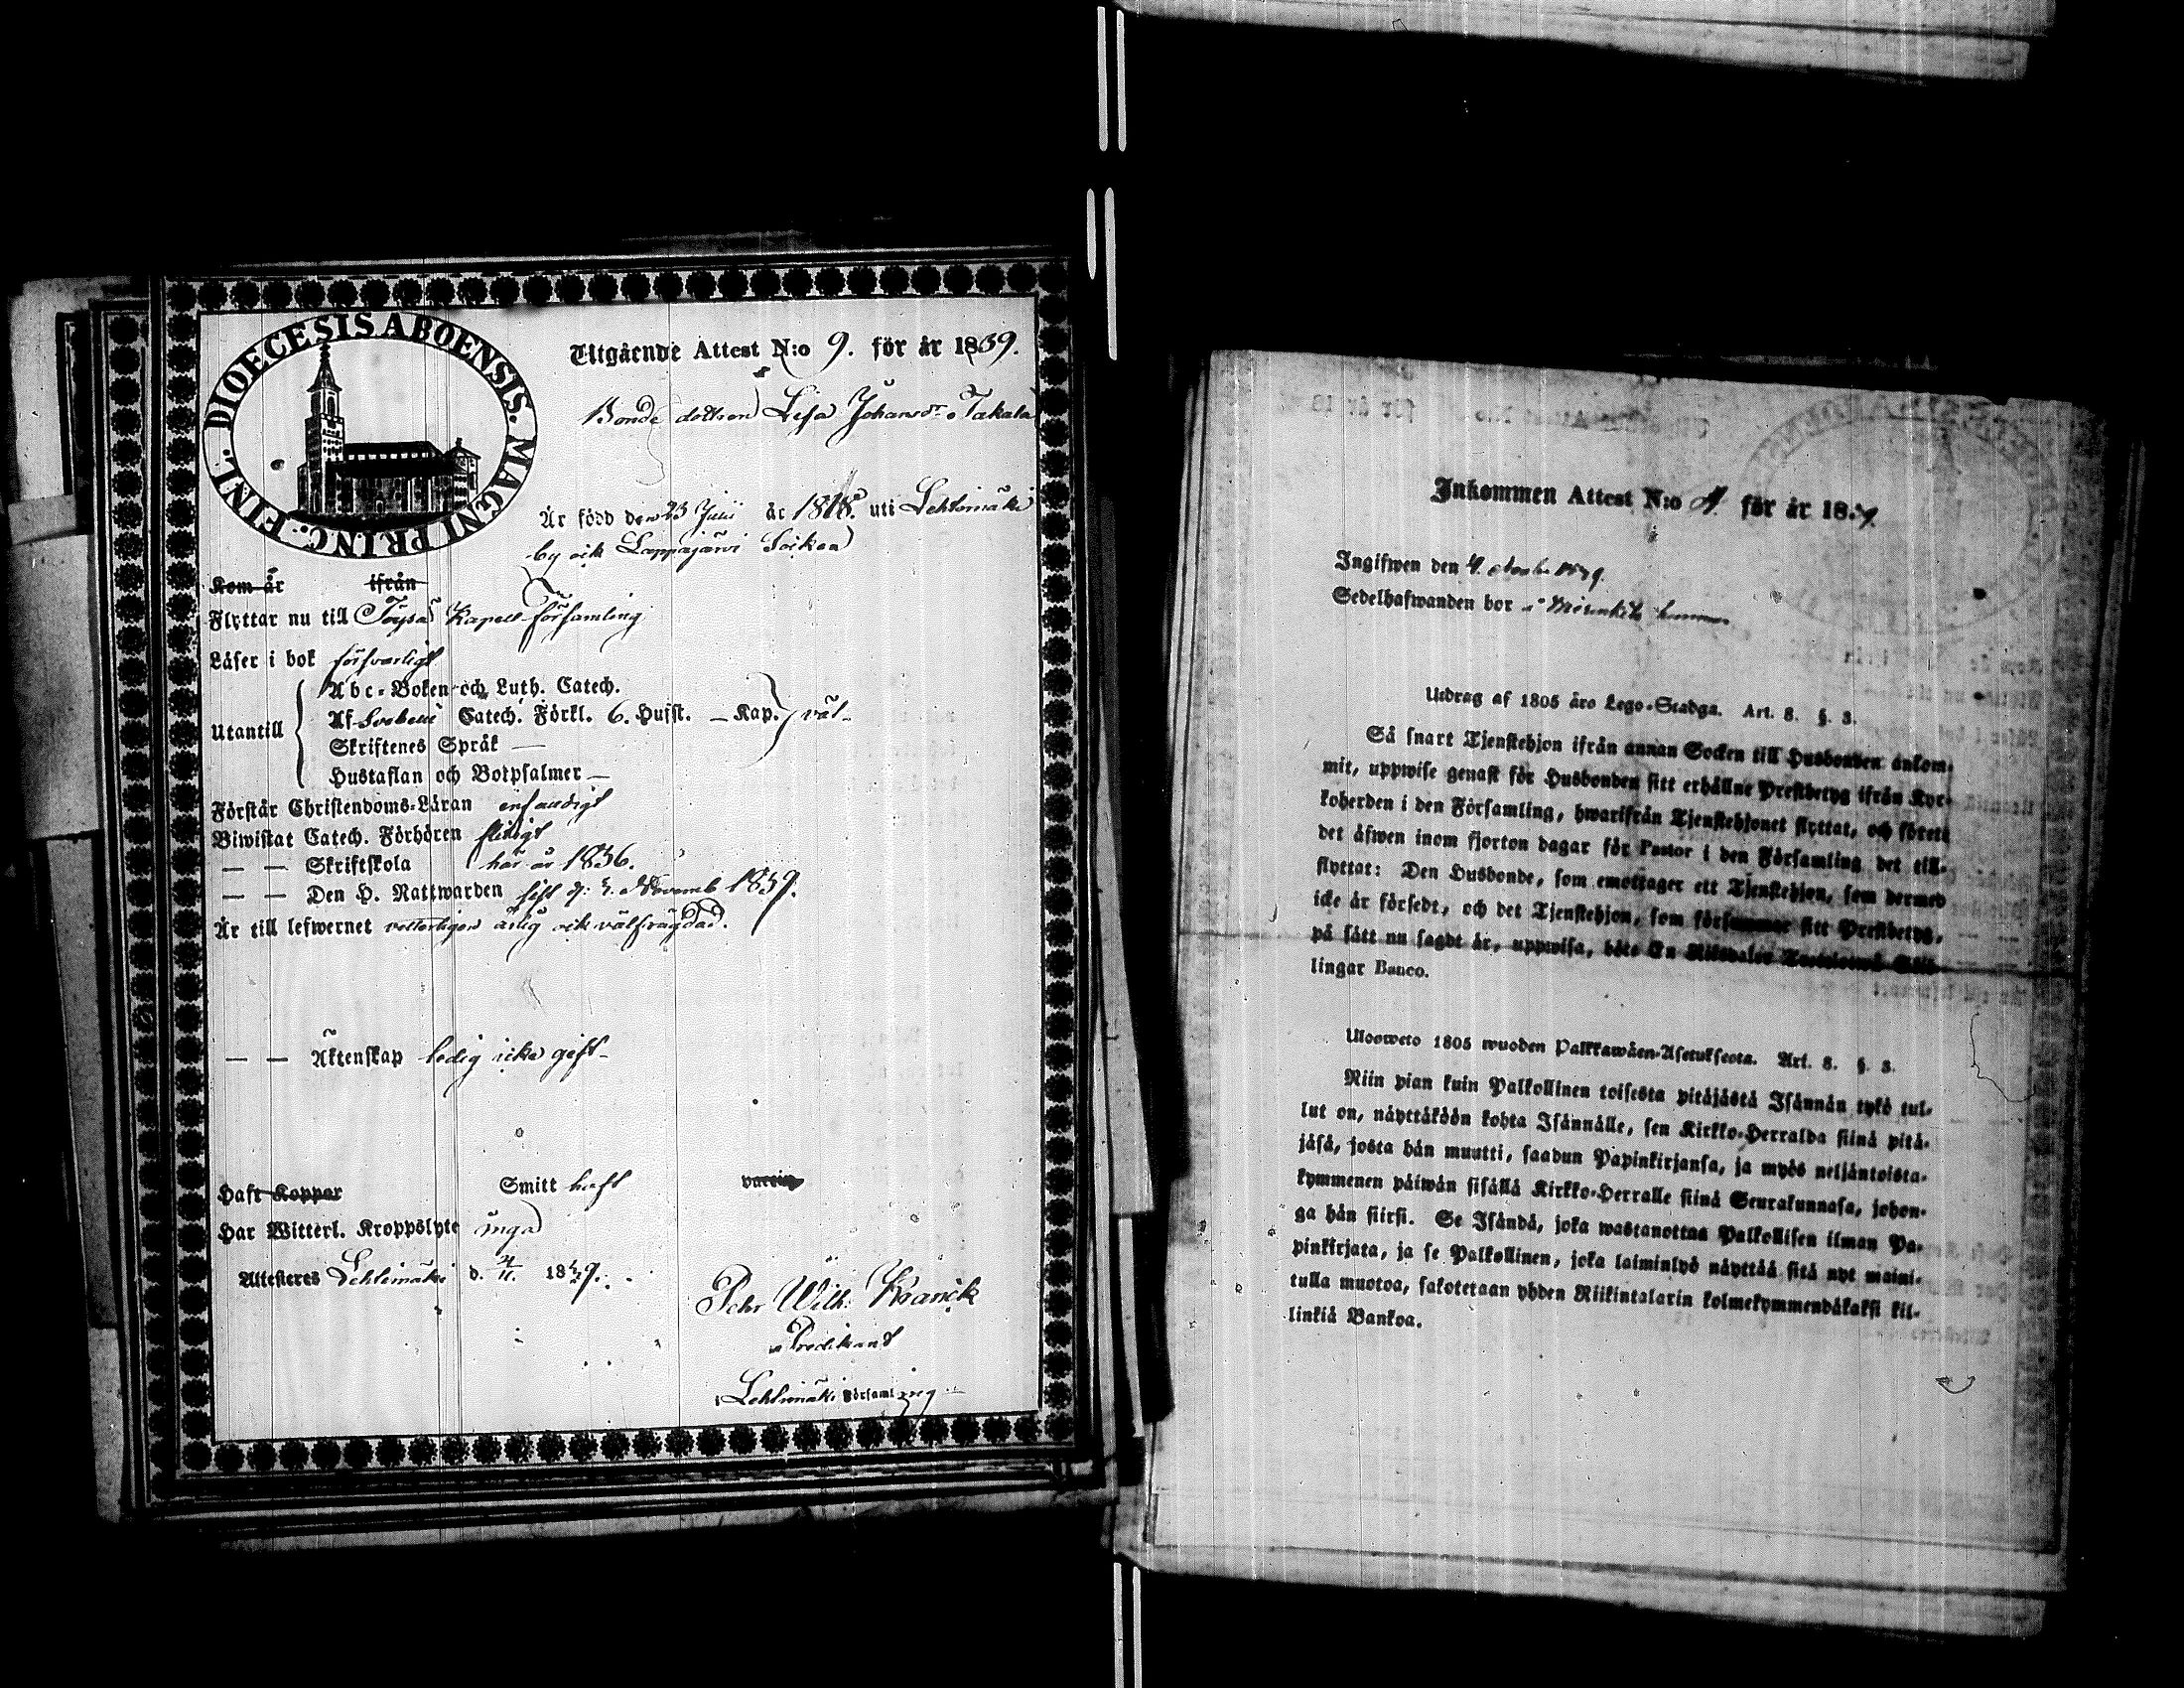 DIOECESIS ABOENSIS. MAGNI PRINC. FINL.
Utgående Attest N:o 9. för år 1839.
Bonde dottren Lisa Johansdr Takala
Är född den 23 Junii år 1818. uti Lehtimäki
by och Lappajärvi Socken
Kom år ifrån
Flyttar nu till Töysä Kapell församling
Läser i bok försvarligt
Utantill
Abc-Boken och Luth. Catech.
Af Svebelii Catech. Förkl. 6. Hufst. — Kap. väl
Skriftenes Språk —
Hustaflan och Botpsalmer —
Förstår Christendoms-Läran enfaldigt
Biwistat Catech. Förhören flitigt
— — Skriftskola här år 1836.
— — Den H. Nattwarden sist d: 3. Novemb 1839.
Är till lefwernet vetterligen ärlig och välfrägdad.
— — Äktenskap ledig icke gift
Haft Koppor Smitt haft
Har Witterl. Kroppslyte inga
Attesteres Lehtimäki d. 18 39.
Pehr Wilh. Kranck
Predikant
i Lehtimäki Församling
Inkommen Attest N:o för år 18
Ingifwen den 4.
Sedelhafwanden bor
Utdrag af 1805 års Lego-Stadga. Art. 8. §. 3.
Så snart Tjenstehjon ifrån annan Socken till Husbonden ankom-
mit, uppwise genast för Husbonden sitt erhållne Prestbetyg ifrån Kyr-
koherden i den Församling, hwarifrån Tjenstehjonet flyttat, och förete
det äfwen inom fjorton dagar för Pastor i den Församling det till-
flyttat: Den Husbonde, som emottager ett Tjenstehjon, som dermed
icke är försedt, och det Tjenstehjon, som försummar sitt Prestbetyg,
på sätt nu sagdt är, uppwisa, böte En Riksdaler Trettiotwå Skil-
lingar Banco.
Ulosweto 1805 wuoden Palkkawäen-Asetuksesta. Art. 8. §. 3.
Niin pian kuin Palkollinen toisesta pitäjästä Isännän tykö tul-
lut on, näyttäköön kohta Isännälle, sen Kirkko-Herralda siinä pitä-
jäsä, josta hän muutti, saadun Papinkirjansa, ja myös neljäntoista-
kymmenen päiwän sisällä Kirkko-Herralle siinä Seurakunnasa, johon-
ga hän siirsi. Se Isändä, joka wastanottaa Palkollisen ilman Pa-
pinkirjata, ja se Palkollinen, joka laiminlyö näyttää sitä nyt maini-
tulla muotoa, sakotetaan yhden Riikintalarin kolmekymmendäkaksi kil-
linkiä Bankoa.